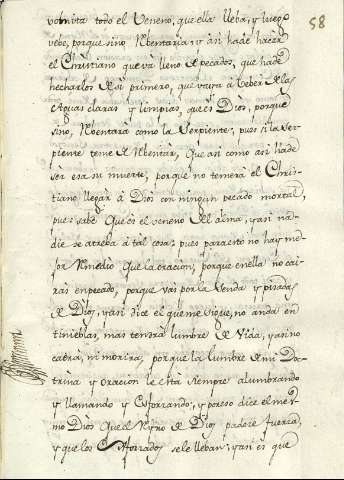 58
vomita todo el Veneno, que ella lleba, y luego
vebe, porque sino Rebentaria; y asi hade hacer
el Christiano que vá lleno de pecados, que hade
hecharlos de si primero, que vaya à beber de las
Aguas claras y limpias, que es Dios, porque
sino, Rebentara como la Serpiente; pues si la Ser-
piente teme de Rebentar, Que asi como asi hade
ser esa su muerte, porque no temerá el Chris-
tiano llegar à Dios con ningun pecado mortal,
pues sabe Que es el veneno del alma, y asi na-
die se atreba à tal cosa; pues para esto no hay me-
jor Remedio Que la oracion, porque en ella no cai-
ras en pecado, porque vas por la Senda y pisadas
de Dios, y asi dice el que me sigue, no anda en
tinieblas, mas tendrá lumbre de Vida, y asi no
caerá, ni morira, porque la lumbre de mi Do-
trina y oracion le està siempre alumbrando
y llamando y Esforzando; y por eso dice el mes-
mo Dios Que el Reyno de Dios padece fuerza,
y que los Esforzados se le lleban; y asi es que